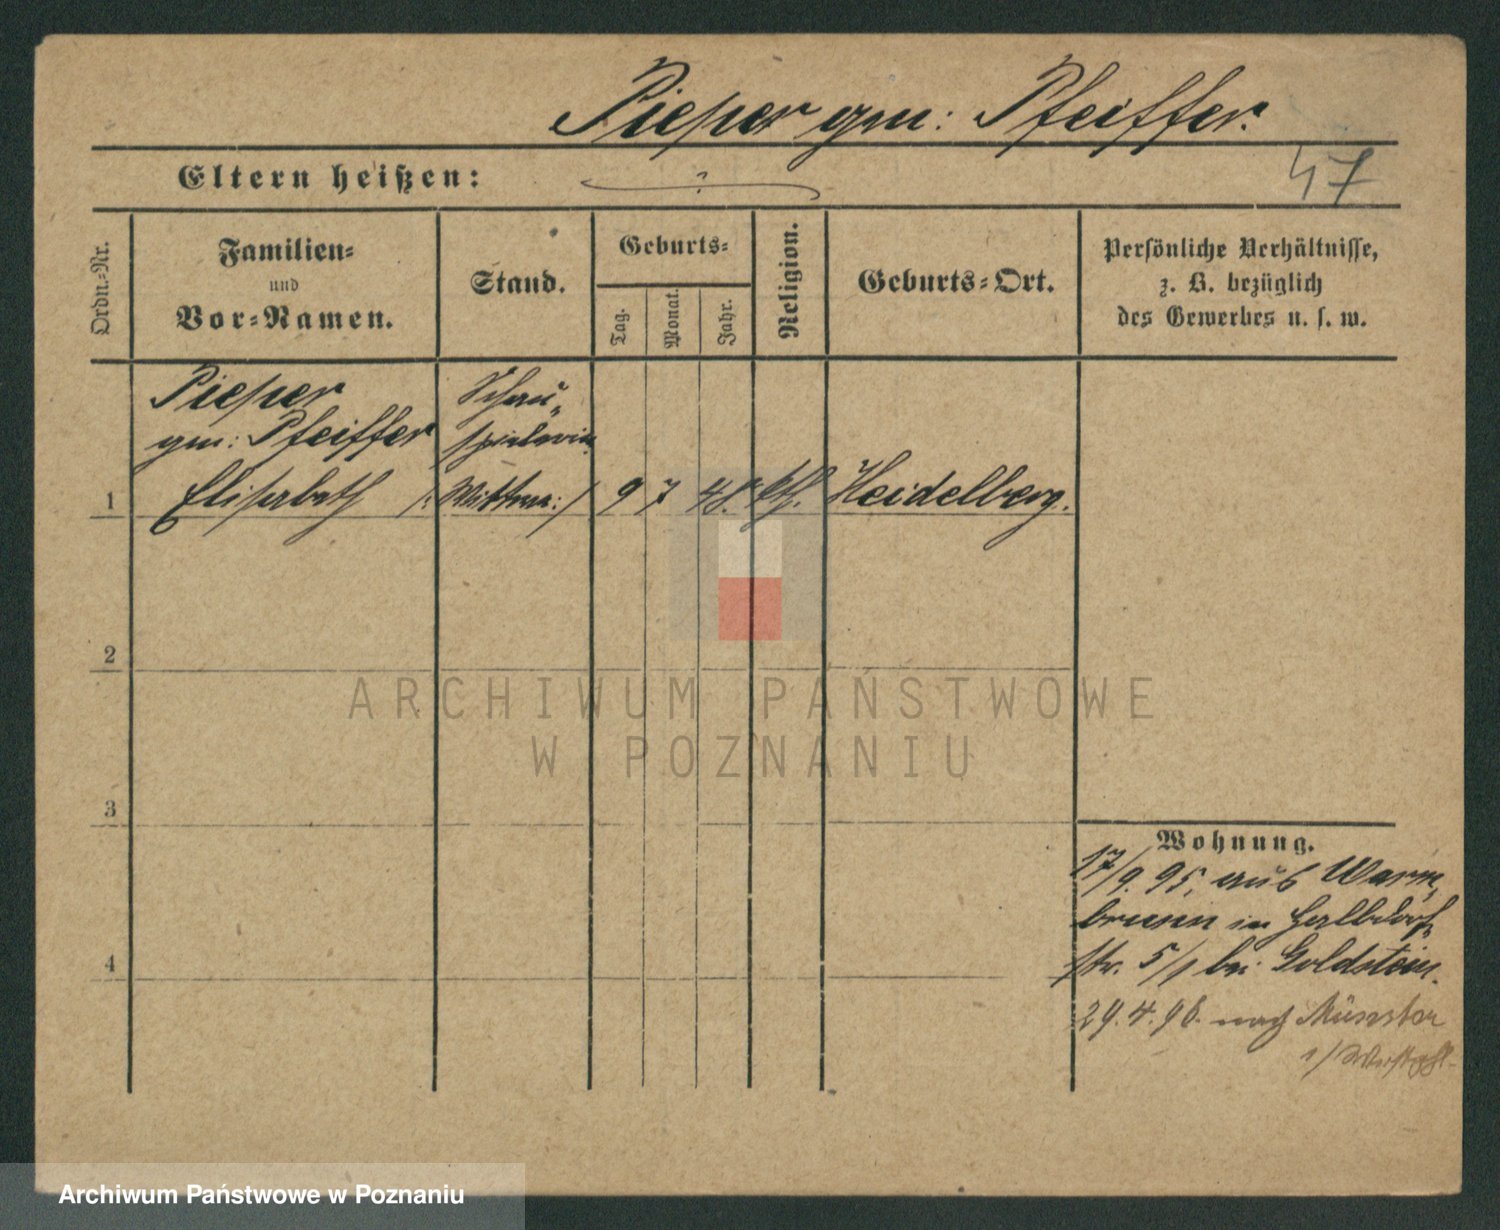 Pieper gen: Pfeiffer.
Eltern heißen: ?
47
Ordn.-Nr.
Familien-
und
Vor-Namen.
Stand.
Geburts-
Tag.
Monat.
Jahr.
Religion.
Geburts-Ort.
Persönliche Verhältnisse,
z. B. bezüglich
des Gewerbes u. s. w.
Pieper
gen: Pfeiffer
Schau„
spielerin
1 Elisabeth /:Wittwe:/ 9 7 48. kth. Heidelberg.
2
ARCHIWUM PAŃSTWOWE
W POZNANIU
3
Wohnung.
17/9. 95. aus Warm„
brunn in Halbdorf„
str. 5/1 bei Goldstein.
4
29.4.96. nach Münster
i/Westphl.
Archiwum Państwowe w Poznaniu